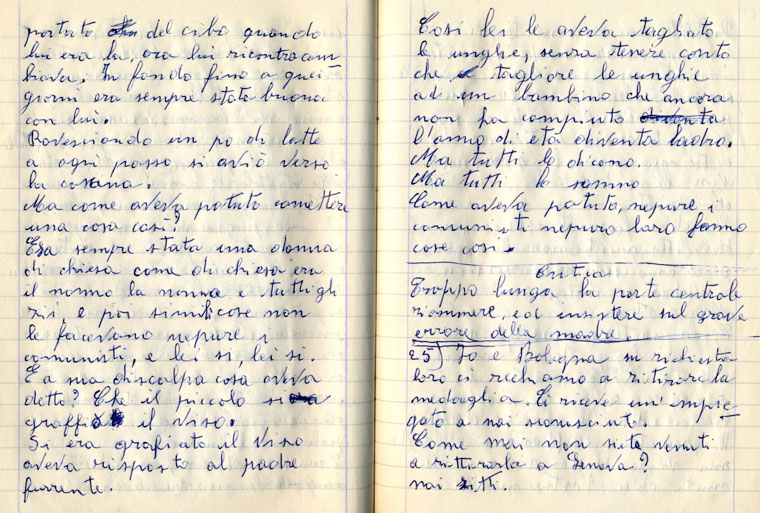 portato del cibo quando
lui era la, ora lui ricontracam
biava. In fondo fino a quei
giorni era sempre stata buona
con lui.
Rovesciando un po di latte
a ogni passo si aviò verso
la cascina.
Ma come aveva potuto comettere
una cosa così?
Era sempre stata una donna
di chiesa come di chiesa era
il nonno la nonna e tutti gli
zii, e poi simili cose non
le facevano nepure i
comunisti, e lei si, lei si.
E a sua discolpa cosa aveva
detto? Che il piccolo si
graffia il viso.
Si era grafiato il viso
aveva risposto al padre
furente.
Cosi lei le aveva tagliato
le unghie, senza tenere conto
che tagliare le unghie
ad un bambino che ancora
non ha compiuto diventa
l'anno di età diventa ladro.
Ma tutti lo dicono.
Ma tutti lo sanno
Come aveva potuto, nepure i
comunisti nepure loro fanno
cose così.
Critica
Troppo lunga la parte centrale
riassumere, ed insistere sul grave
errore della madre
25) Io e Bologna su richiesta
loro ci rechiamo a ritirare la
medaglia. Ci riceve un'impie
gato a noi sconosciuto.
Come mai non siete venuti
a rittirarla a Genova?
noi zitti.